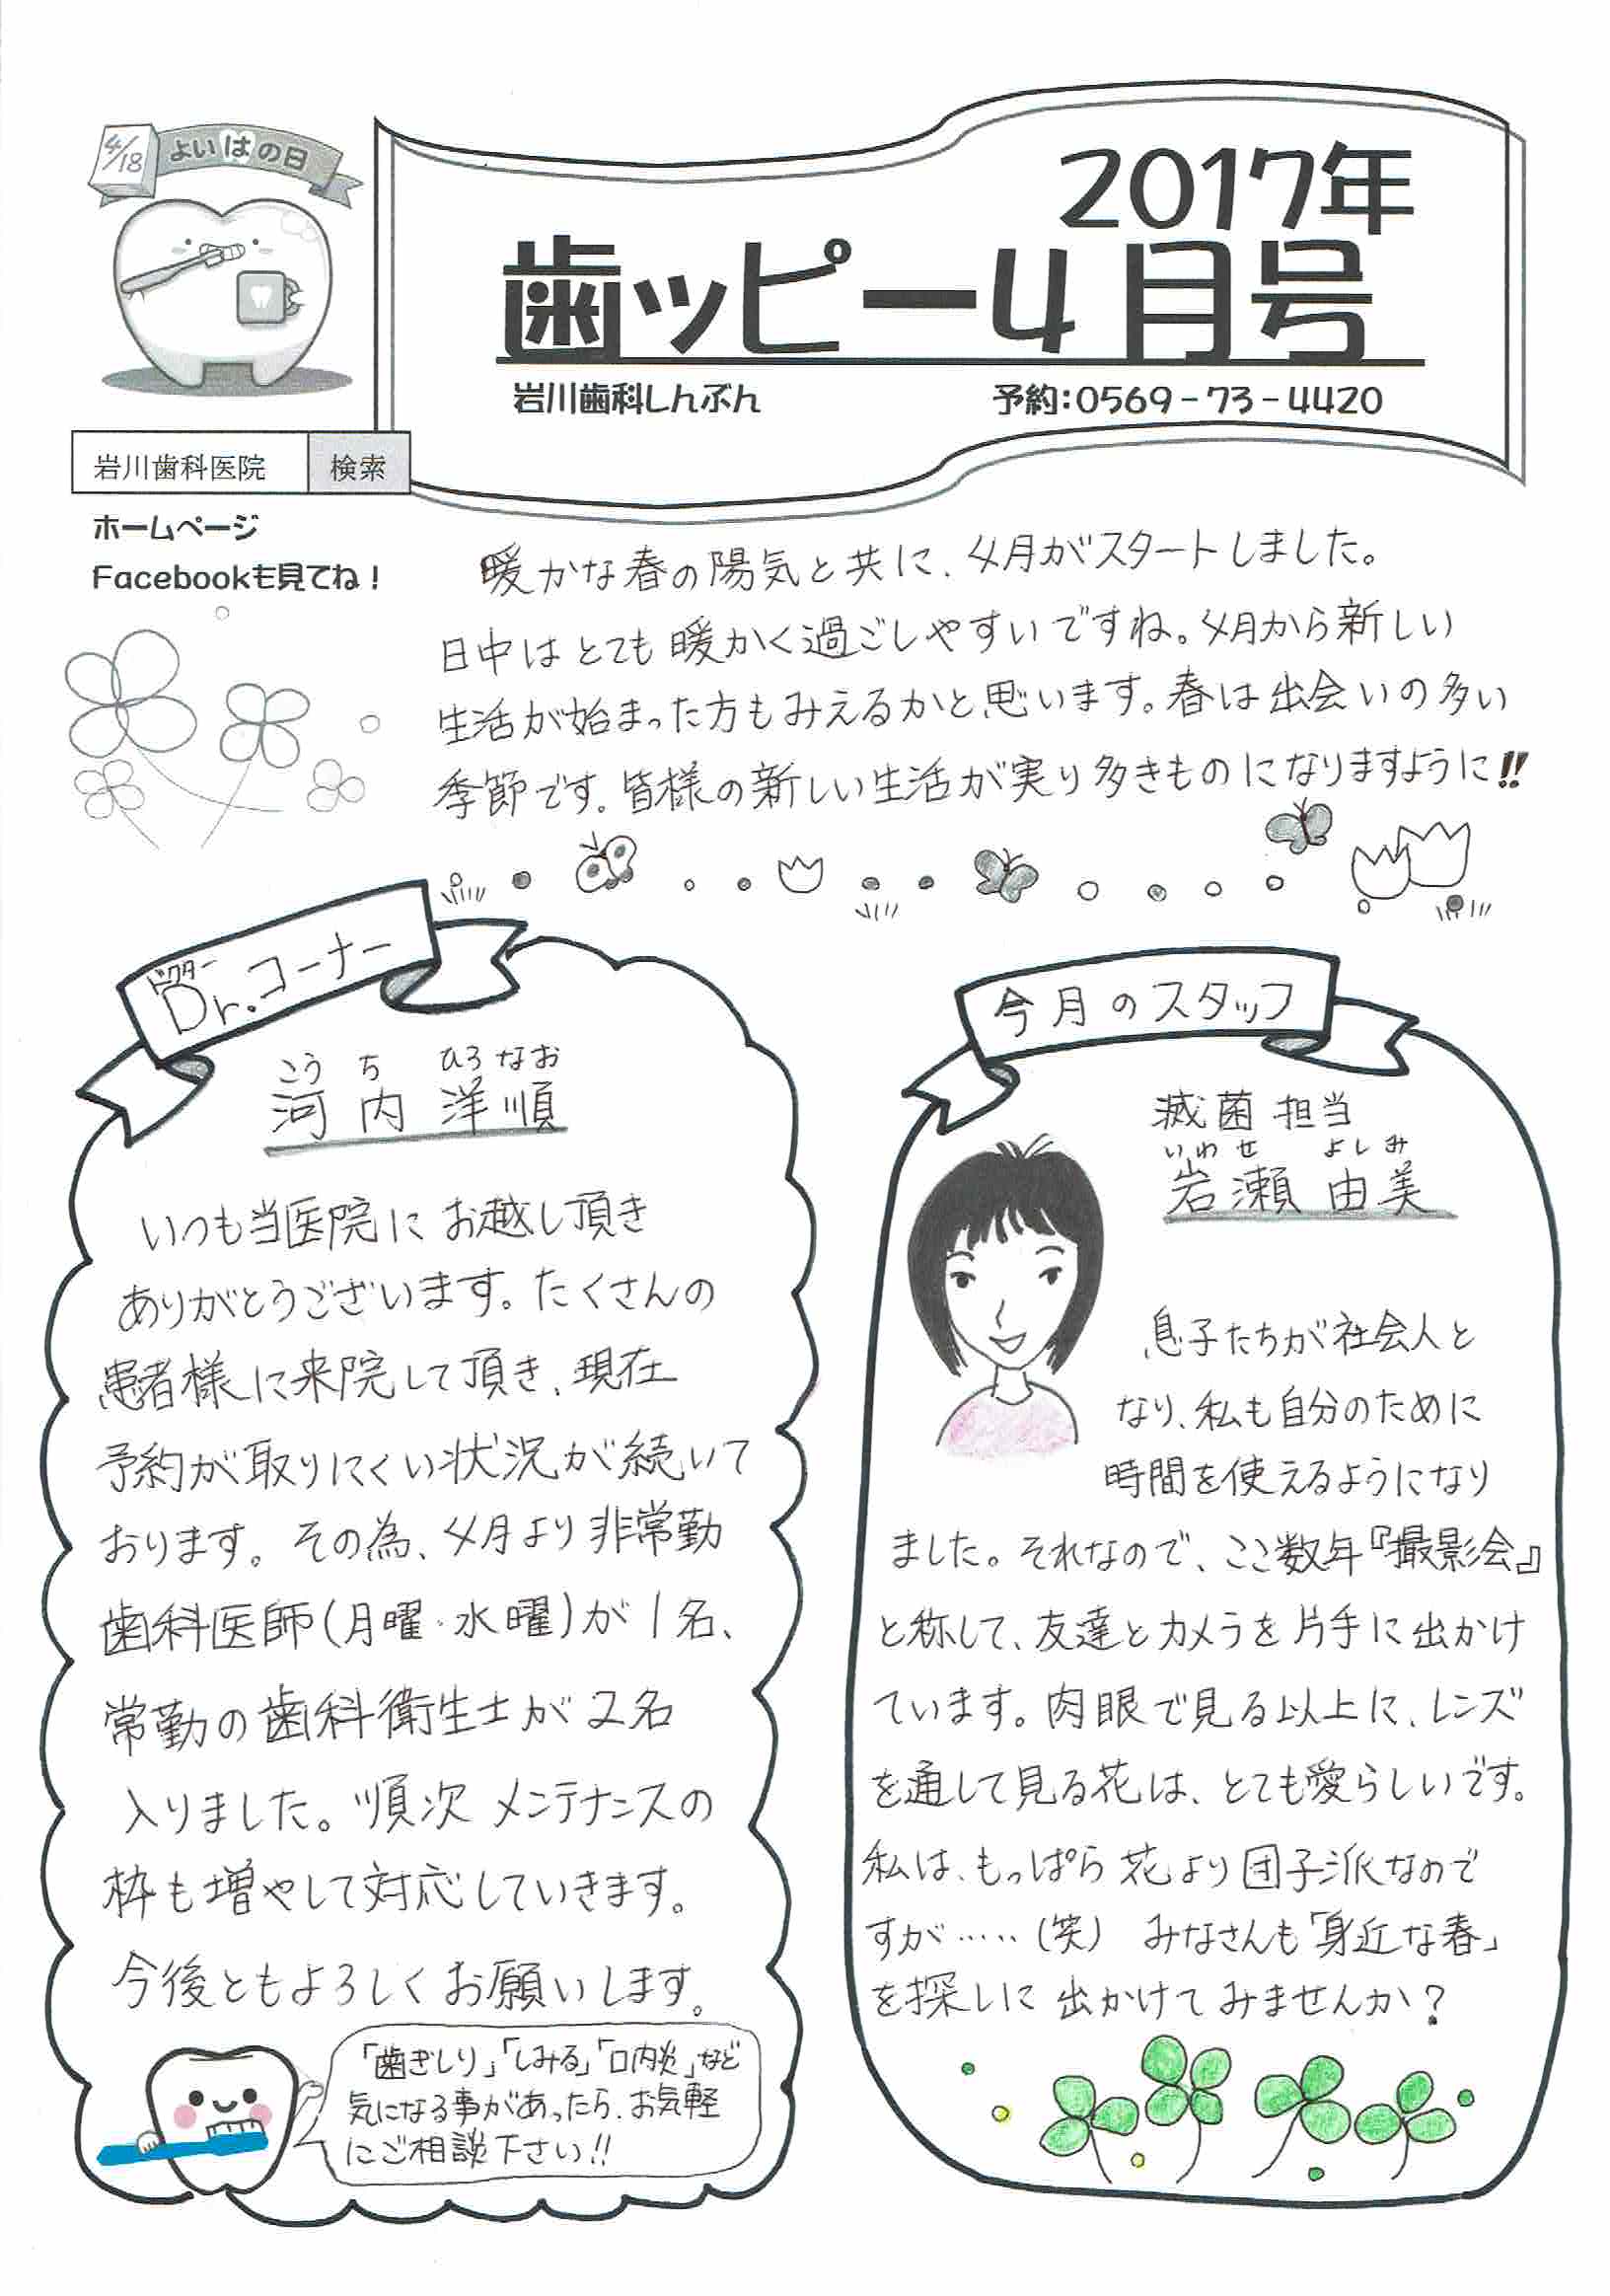 4/18
よいはの日
2017年
歯ッピー4月号
岩川歯科しんぶん
予約:0569-73-4420
岩川歯科医院
検索
ホームページ
Facebookも見てね!
暖かな春の陽気と共に、4月がスタートしました。
日中はとても暖かく過ごしやすいですね。4月から新しい
生活が始まった方もみえるかと思います。春は出会いの多い
季節です。皆様の新しい生活が実り多きものになりますように!!
ドクター
Dr.コーナー
こうち ひろなお
河内 洋順
いつも当医院にお越し頂き
ありがとうございます。たくさんの
患者様に来院して頂き、現在
予約が取りにくい状況が続いて
おります。その為、4月より非常勤
歯科医師(月曜・水曜)が1名、
常勤の歯科衛生士が2名
入りました。順次メンテナンスの
枠も増やして対応していきます。
今後ともよろしくお願いします。
「歯ぎしり」「しみる」「口内炎」など
気になる事があったら、お気軽
にご相談下さい!!
今月のスタッフ
滅菌担当
いわせ よしみ
岩瀬 由美
息子たちが社会人と
なり、私も自分のために
時間を使えるようになり
ました。それなので、ここ数年『撮影会』
と称して、友達とカメラを片手に出かけ
ています。肉眼で見る以上に、レンズ
を通して見る花は、とても愛らしいです。
私は、もっぱら花より団子派なので
すが……(笑) みなさんも「身近な春」
を探しに出かけてみませんか?